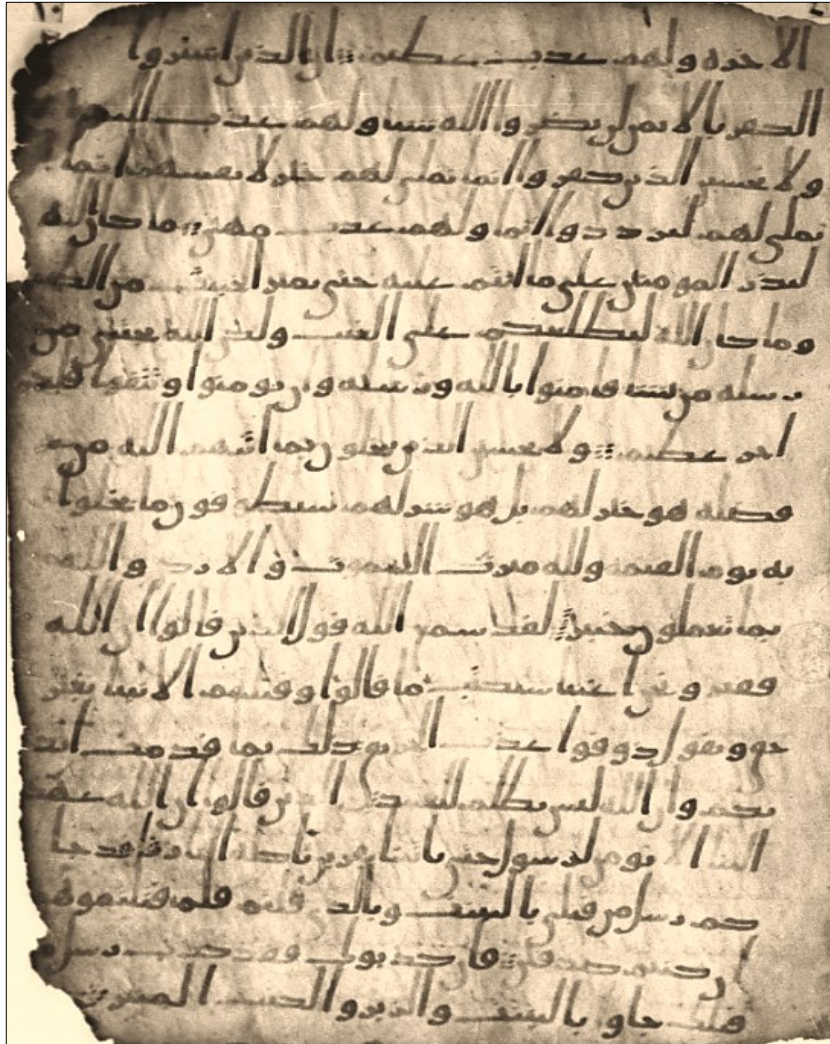 الاخره ولهم عذب عظيم ان الذين اشتروا
الكفر بالايمن لن يضروا الله شيا ولهم عذب اليم
ولا يحسبن الذين كفروا انما نملي لهم خير لانفسهم انما
نملي لهم ليزددوا اثما ولهم عذب مهين ما كان الله
ليذر المومنين على ما انتم عليه حتى يميز الخبيث من الطيب
وما كان الله ليطلعكم على الغيب ولكن الله يجتبي من
رسله من يشا فامنوا بالله ورسله وان تومنوا وتتقوا فلكم
اجر عظيم ولا يحسبن الذين يبخلون بما اتيهم الله من
فضله هو خير لهم بل هو شر لهم سيطوقون ما بخلوا
به يوم القيمه ولله ميرث السموت والارض والله
بما تعملون خبير لقد سمع الله قول الذين قالوا ان الله
فقير ونحن اغنيا سنكتب ما قالوا وقتلهم الانبيا بغير
حق ونقول ذوقوا عذب الحريق ذلك بما قدمت ايد
يكم وان الله ليس بظلم للعبيد الذين قالوا ان الله عهد
الينا الا نومن لرسول حتى ياتينا بقربن تاكله النار قل قد جا
كم رسل من قبلي بالبينت وبالذي قلتم فلم قتلتموهم
ان كنتم صدقين فان كذبوك فقد كذب رسل
قبلك جاو بالبينت والزبر والكتب المنير